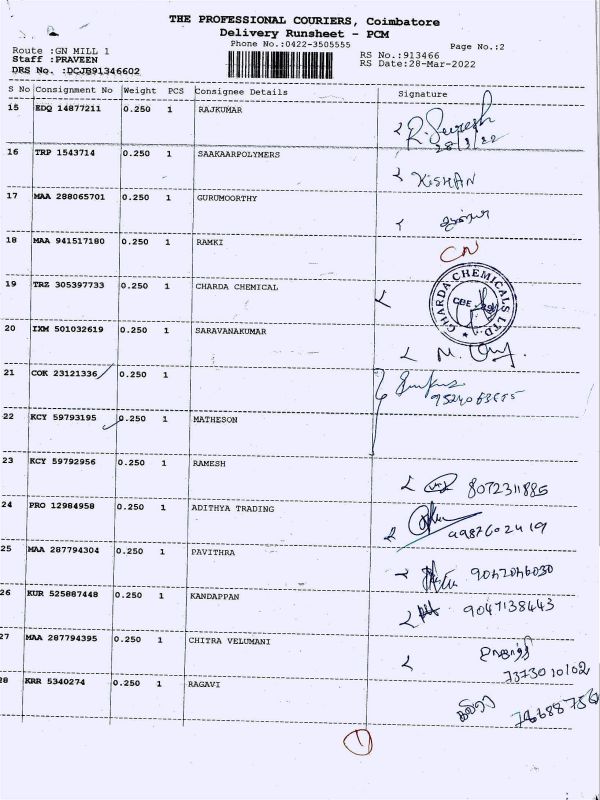 THE PROFESSIONAL COURIERS, Coimbatore
Delivery Runsheet - PCM
Phone No.:0422-3505555
Page No.:2
Route :GN MILL 1
Staff :PRAVEEN
DRS No. :DCJB91346602
RS No.:913466
RS Date:28-Mar-2022
S No Consignment No Weight PCS Consignee Details Signature
15 EDQ 14877211 0.250 1 RAJKUMAR R.Suresh
28/3/22
16 TRP 1543714 0.250 1 SAAKAARPOLYMERS KISHAN
17 MAA 288065701 0.250 1 GURUMOORTHY
18 MAA 941517180 0.250 1 RAMKI CN
19 TRZ 305397733 0.250 1 CHARDA CHEMICAL GHARDA CHEMICALS LTD.
CBE
20 IXM 501032619 0.250 1 SARAVANAKUMAR
21 COK 23121336 0.250 1
22 KCY 59793195 0.250 1 MATHESON
23 KCY 59792956 0.250 1 RAMESH 8072311885
24 PRO 12984958 0.250 1 ADITHYA TRADING 9987602419
25 MAA 287794304 0.250 1 PAVITHRA 9042046030
26 KUR 525887448 0.250 1 KANDAPPAN 9047138443
27 MAA 287794395 0.250 1 CHITRA VELUMANI
7373010102
28 KRR 5340274 0.250 1 RAGAVI
1